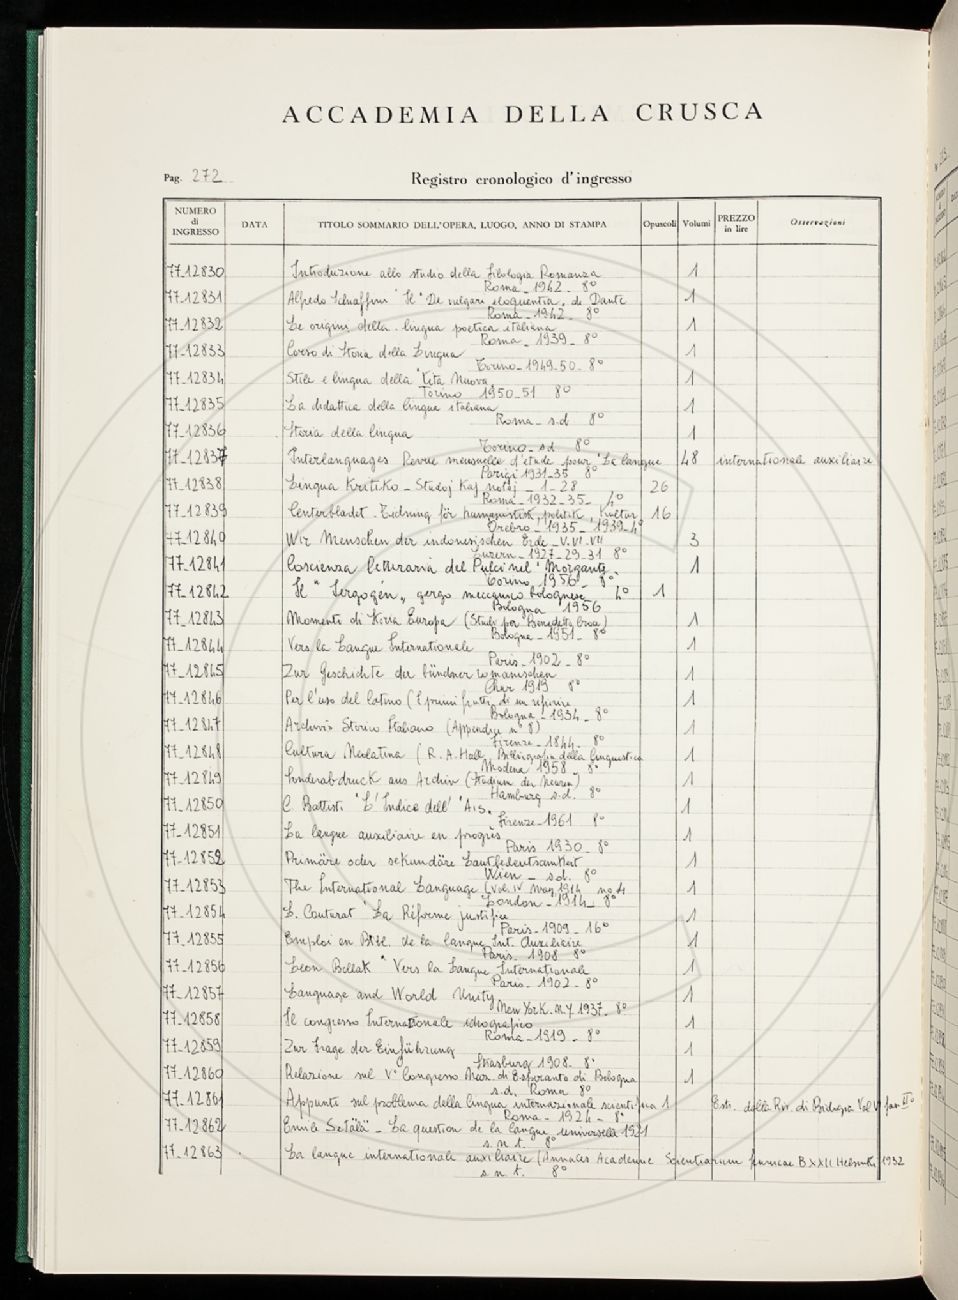 ACCADEMIA DELLA CRUSCA
Pag. 272
Registro cronologico d'ingresso
NUMERO di INGRESSO DATA TITOLO SOMMARIO DELL'OPERA, LUOGO, ANNO DI STAMPA Opuscoli Volumi PREZZO in lire Osservazioni
77_12830 Introduzione allo studio della filologia Romanza 1
Roma_1942_ 8°
77_12831 Alfredo Schiaffini "Il "De vulgari eloquentia, di Dante 1
Roma_1942_ 8°
77_12832 Le origini della lingua poetica italiana 1
Roma_ 1939_ 8°
77_12833 Corso di Storia della Lingua 1
Torino_1949_50_ 8°
77_12834 Stile e lingua della Vita Nuova 1
Torino 1950_51 8°
77_12835 La didattica della lingua italiana 1
Roma_ s.d 8°
77_12836 Storia della lingua 1
Torino_ s.d 8°
77_12837 Interlanguages Revue mensuelle d'etude pour "La langue 48 internationale auxiliaire
Parigi 1931_35 8°
77_12838 Lingua Kritiko_ Studoj Kaj notoj_ 1_28 26
Roma_1932_35_ 4°
77_12839 Centerbladet_ Tidning för humanistisk, politik, Kultur 16
Örebro_1935_1939_4°
77_12840 Wir Menschen der indonesischen Erde_V.VI.VII 3
Luzern_1927_29_31 8°
77_12841 Coscienza letteraria del Pulci nel "Morgante" 1
Torino 1956_ 8°
77_12842 Il "Gergogén" gergo meccanico bolognese_ 4° 1
Bologna 1956
77_12843 Momenti di Europa (Studi per Benedetto Croce) 1
Bologna_1951_ 8°
77_12844 Vers la Langue Internationale 1
Paris_1902_ 8°
77_12845 Zur Geschichte der bündner romanischen 1
Chur 1919 8°
77_12846 Per l'uso del latino (I primi frutti di un 1
Bologna_1934_ 8°
77_12847 Archivio Storico Italiano (Appendice n° 8) 1
Firenze_1844_ 8°
77_12848 Cultura Neolatina (R.A. Hall, Bibliografia della linguistica 1
Modena 1958_ 8°
77_12849 Sonderabdruck aus Archiv (Studium der Neueren) 1
Hamburg s.d. 8°
77_12850 C. Battisti "L'Indice dell' "Ais. 1
Firenze_1961 8°
77_12851 La langue auxiliaire en progrès 1
Paris 1930_ 8°
77_12852 Primäre oder sekundäre Lautbedeutsamkeit 1
Wien_ s.d. 8°
77_12853 The International Language (Vol. IV May 1914_ no 4 1
London_1914_ 8°
77_12854 L. Couturat "La Réforme justifiée 1
Paris_1909_ 16°
77_12855 Emploi en Bibl. de la langue Int. Auxiliaire 1
Paris. 1908 8°
77_12856 Léon Bollak "Vers la Langue Internationale 1
Paris_1902_ 8°
77_12857 Language and World Unity 1
New York_N.Y 1937_ 8°
77_12858 Il congresso Internazionale idiografico 1
Roma_1919_ 8°
77_12859 Zur Frage der Einführung 1
Strasburg 1908_ 8°
77_12860 Relazione sul V° Congresso Naz. di Esperanto di Bologna 1
s.d. Roma 8°
77_12861 Appunti sul problema della lingua internazionale scientifica 1 Estr. dalla Riv. di Biologia Vol VI fasc III°
Roma_ 1924_ 8°
77_12862 Emile Setälä_ La question de la langue universelle 1921
s.n.t. 8°
77_12863 La langue internationale auxiliaire (Annales Academiae Scientiarum fennicae B XXII Helsinki 1932
s.n.t. 8°